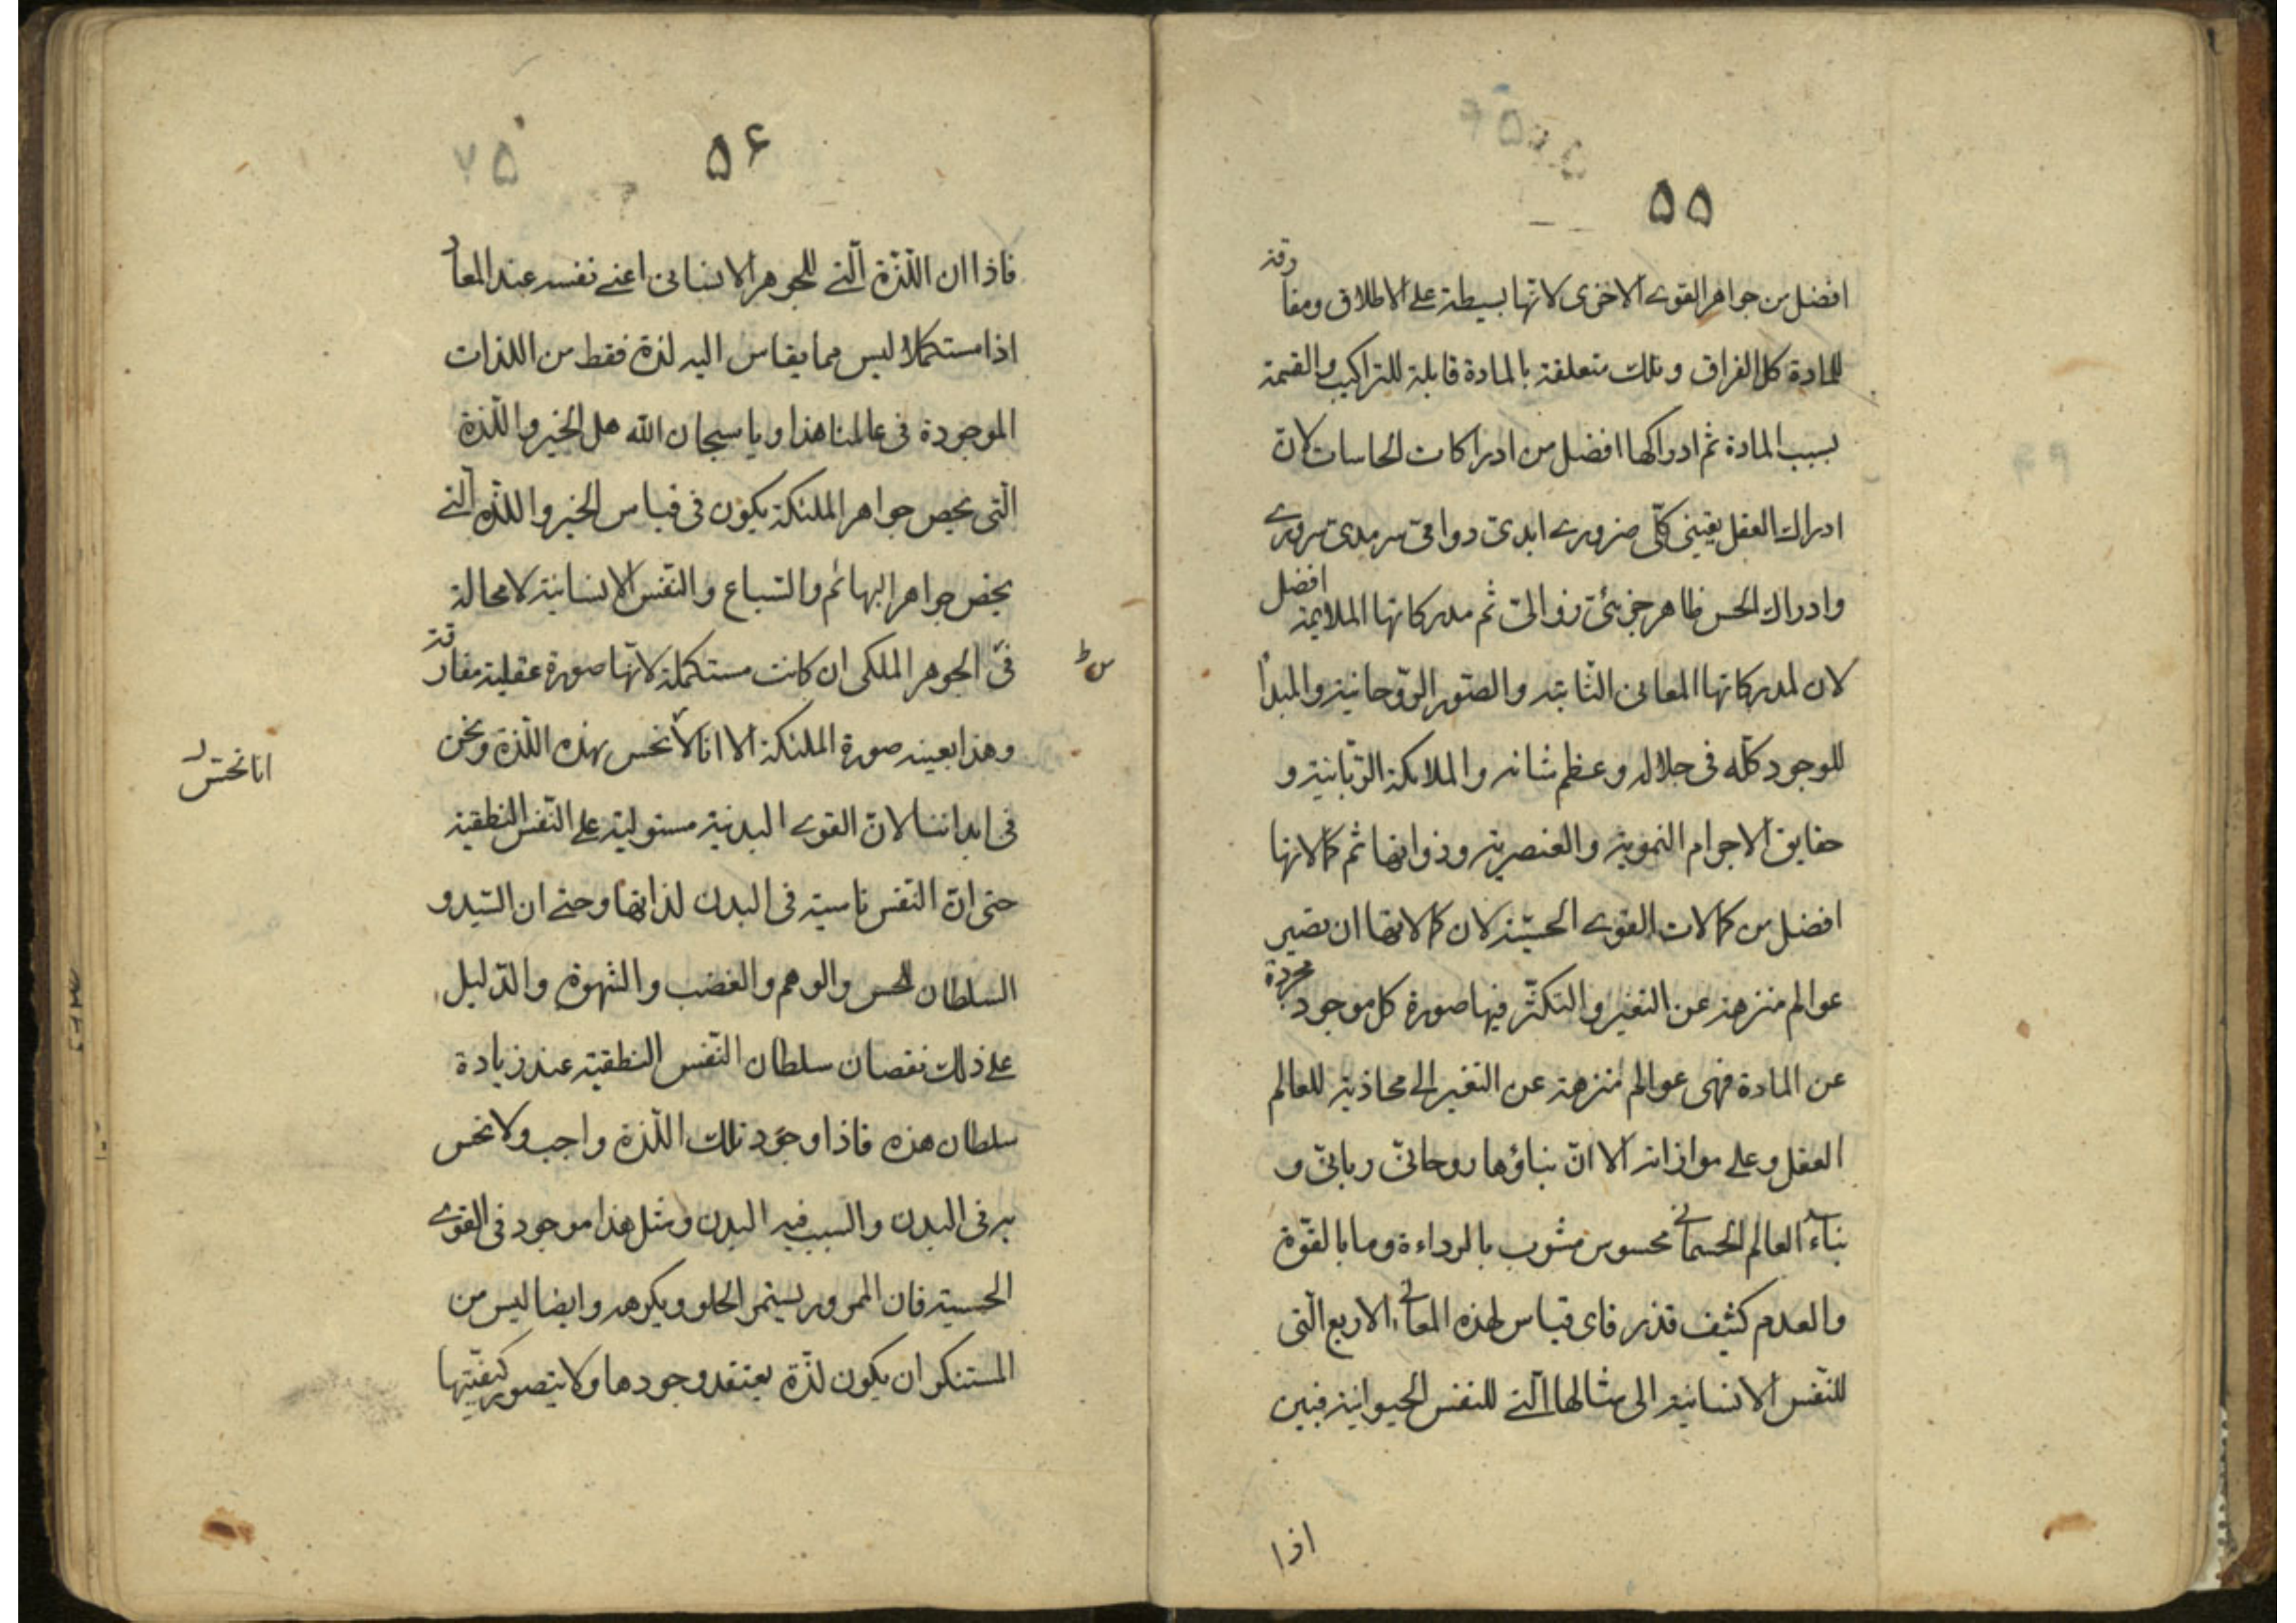 ۵۵
افضل من جواهر القوى الاخرى لانها بسيطة على الاطلاق ومفارقة
للمادة كل الفراق وتلك متعلقة بالمادة قابلة للتراكيب والقسمة
بسبب المادة ثم ادراكها افضل من ادراكات الحاسات لانّ
ادراك العقل يقينى كلّى ضرورى ابدىّ دوامىّ سرمدىّ
وادراك الحس ظاهر جزئىّ زوالىّ ثم مدركاتها الملايمة افضل
لان لمدركاتها المعانى الثابتة والصّور الرّوحانية والمبدأ
للوجود كلّه فى جلاله وعظم شانه والملائكة الرّبّانية و
حقايق الاجرام والعنصرية وذواتها ثم كمالاتها
افضل من كمالات القوى الحسّيّة لان كمالاتها ان تصير
عوالم منزهة عن التغير والتكثّر فيها صورة كل موجود مجردة
عن المادة فهى عوالم منزهة عن التغير الى محاذية للعالم
العقل وعلى موازاته الا انّ بناؤها روحانىّ ربانىّ و
بناء العالم الجسمانى محسوس مشوب بالرداءة وما بالقوّة
والعدم كثيف قذر فاى قياس لهذه المعانى الاربع الّتى
للنّفس الانسانية الى مثالها الّتى للنفس الحيوانية فبين
اذا
۵۶
۷۵
فاذا ان اللّذّة الّتى للجوهر الانسانى اعنى نفسه عند المعاد
اذا مستكملا ليس مما يقاس اليه لذة فقط من اللذات
الموجودة فى عالمنا هذا ويا سبحان الله هل الخير واللّذة
الّتى يخص جواهر الملئكة يكون فى قياس الخير واللذّة الّتى
يخص جواهر البهائم والسّباع والنّفس الانسانية لا محالة
فىّ الجوهر الملكى ان كانت مستكملة لانّها صورة عقلية مفارقة
وهذا بعينه صورة الملئكة الا انا لا نحس بهذه اللّذة ونحن
انا نحسّ
فى ابداننا لانّ القوى البدنية مستولية على النّفس النطقية
حتى انّ النّفس ناسية فى البدن لذاتها وحتى ان السّيد و
السلطان للحس والوهم والغضب والشهوة والدّليل
على ذلك نقصان سلطان النّفس النطقية عند زيادة
سلطان هذه فاذا وجود تلك اللّذة واجب ولا نحس
به فى البدن والسبب فيه البدن ومثل هذا موجود فى القوى
الحسية فان الممرور يستمر الحلو ويكرهه وايضا ليس من
المستنكر ان يكون لذّة يعتقد وجودها ولا يتصور كيفيّتها